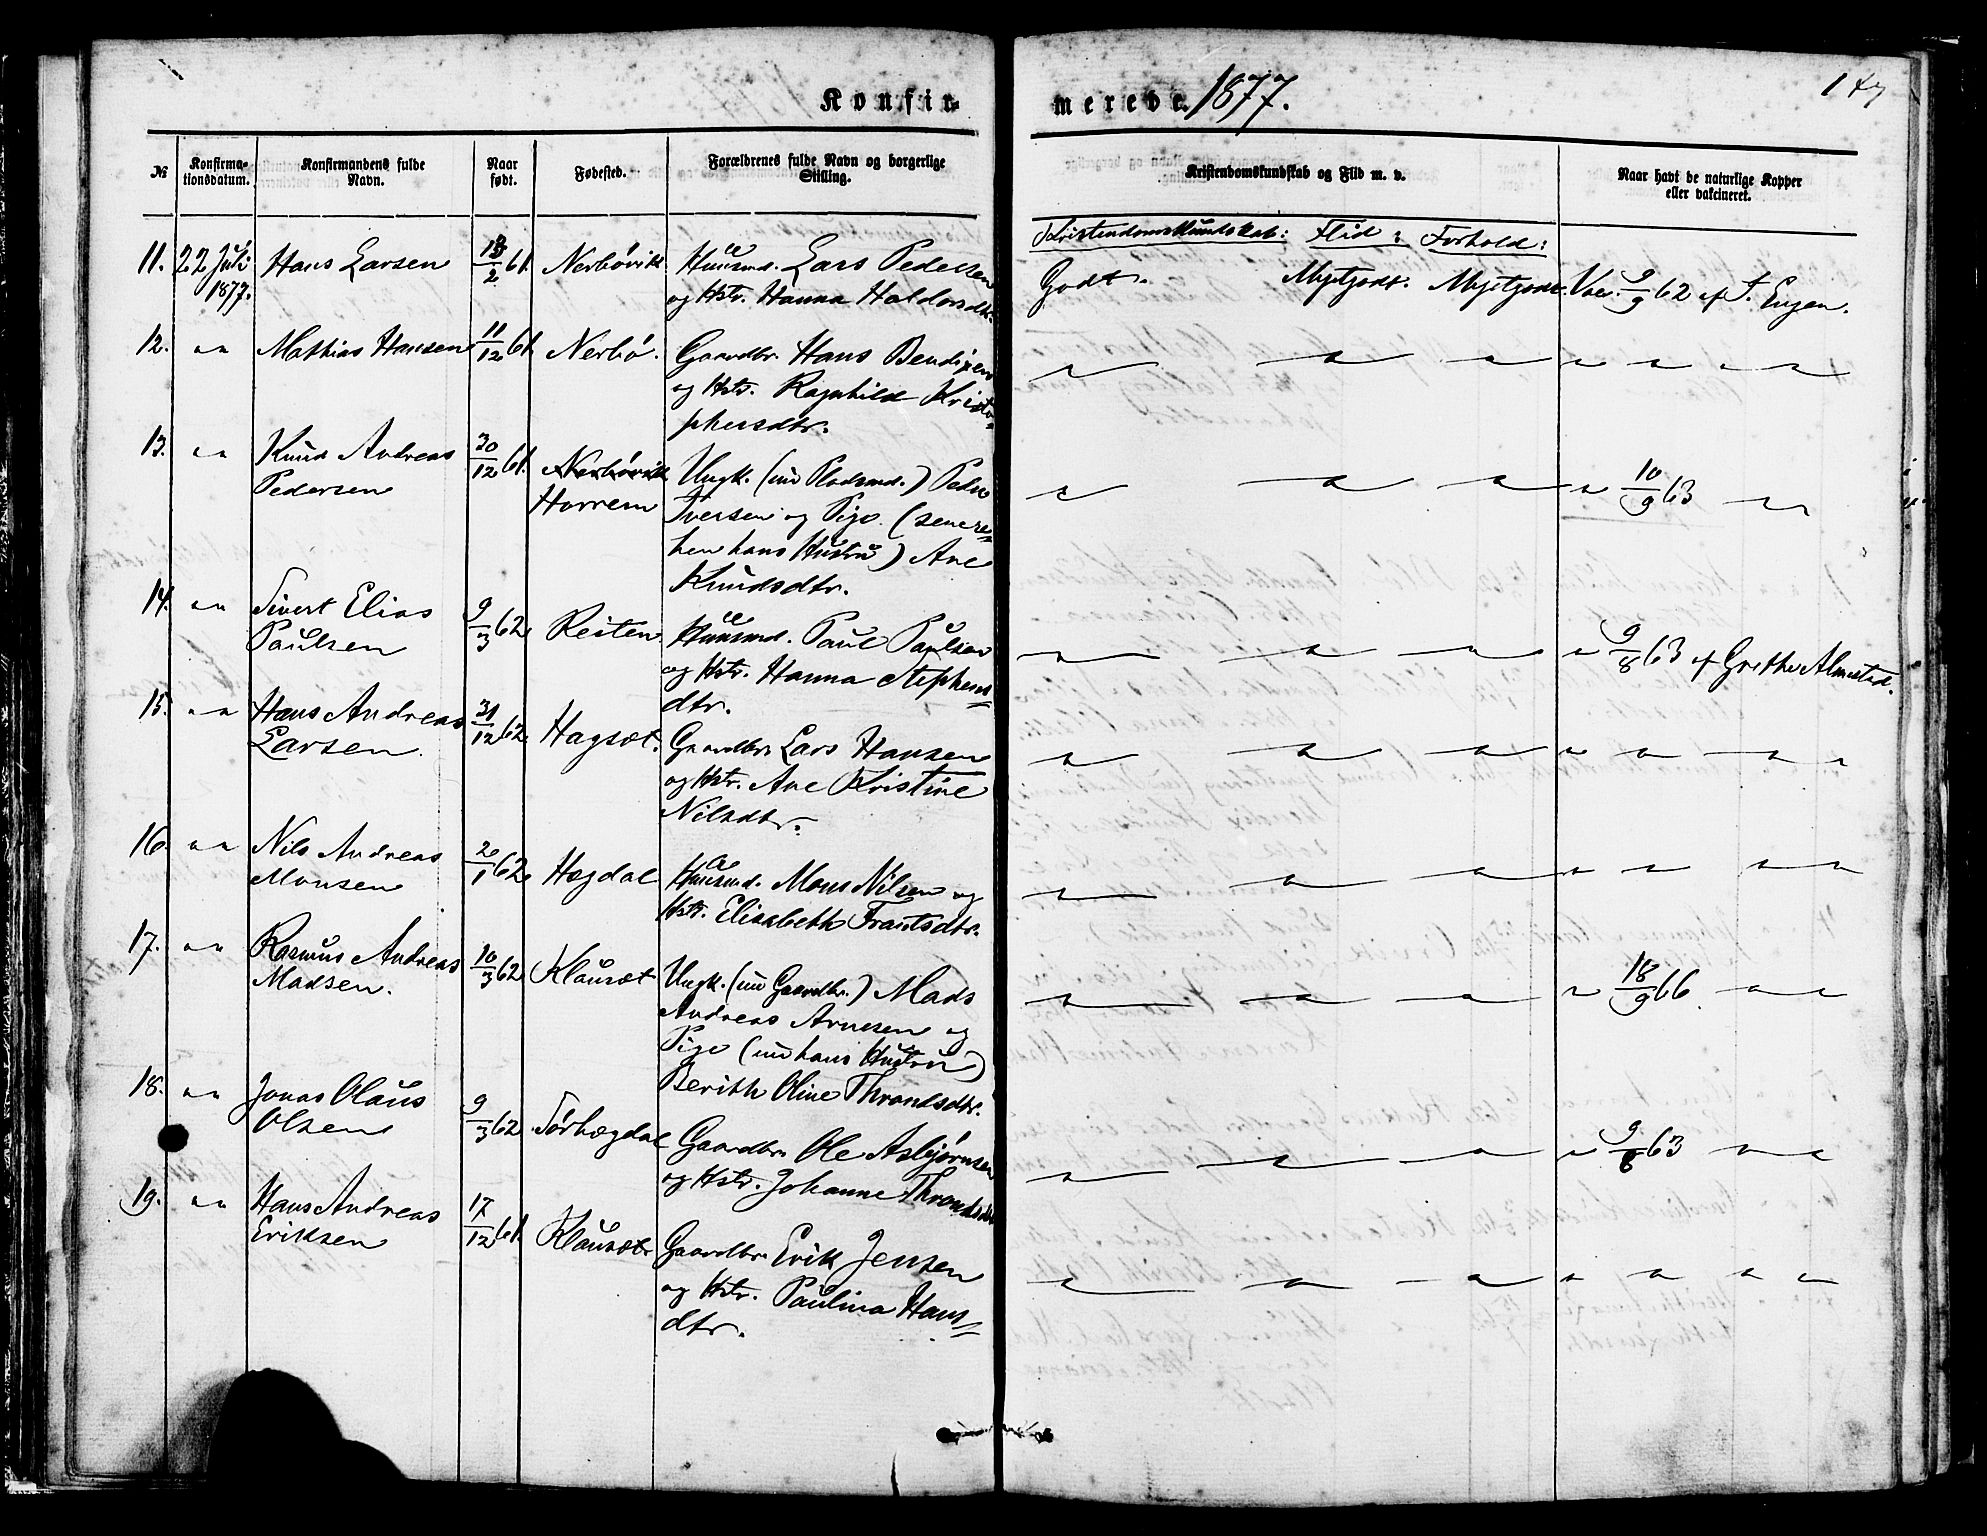 Konfir-
merede. 1877.
147
№
Konfirma-
tionsdatum.
Konfirmandens fulde
Navn.
Naar
født.
Fødested.
Forældrenes fulde Navn og borgerlige
Stilling.
Kristendomskundskab og Flid m. v.
Naar havt de naturlige Kopper
eller vakcineret.
Kristendomskundskab: Flid: Forhold:
11. 22 Juli Hans Larsen 13/2 61. Nerbövik Huusmd. Lars Pedersen
1877. og Hstr. Hanna Haldorsdtr.
Godt. Mgetgodt. Mgetgodt. Vac. 9/9 62 af J. Engen.
12. " Mathias Hansen 11/12 61. Nerbö. Gaardbr. Hans Bendixen
og Hstr. Ragnhild Kristo=
phersdtr.
13. " Knud Andreas 30/12 61. Nerbövik Ungk. (nu Pladsmd.) Peder
Pedersen Horrem Iversen og Pige (senere=
hen hans Hustru) Ane
Knudsdtr.
" 10/9 63 "
14. " Sivert Elias 9/3 62. Reiten Huusmd. Paul Paulsen
Paulsen og Hstr. Hanna Stephens=
dtr.
" 9/8 63 af Grethe Almestad.
15. " Hans Andreas 31/12 62. Hagsæt. Gaardbr. Lars Hansen
Larsen og Hstr. Ane Kristine
Nilsdtr.
16. " Nils Andreas 2/1 62. Hogdal Huusmd. Mons Nilsen og
Monsen Hstr. Elisabeth Frantsdtr.
17. " Rasmus Andreas 10/3 62. Klausæt Ungk. (nu Gaardbr.) Mads
Madsen. Andreas Arnesen og
Pige (nu hans Hustru)
Berith Oline Throndsdtr.
" 18/9 66. "
18. " Jonas Olaus 9/3 62. Sörhogdal Gaardbr. Ole Asbjörnsen
Olsen og Hstr. Johanne Throndsdtr
" 9/8 63 "
19. " Hans Andreas 17/12 61. Klausæt Gaardbr. Erik Jensen
Eriksen og Hstr. Paulina Hans=
dtr.